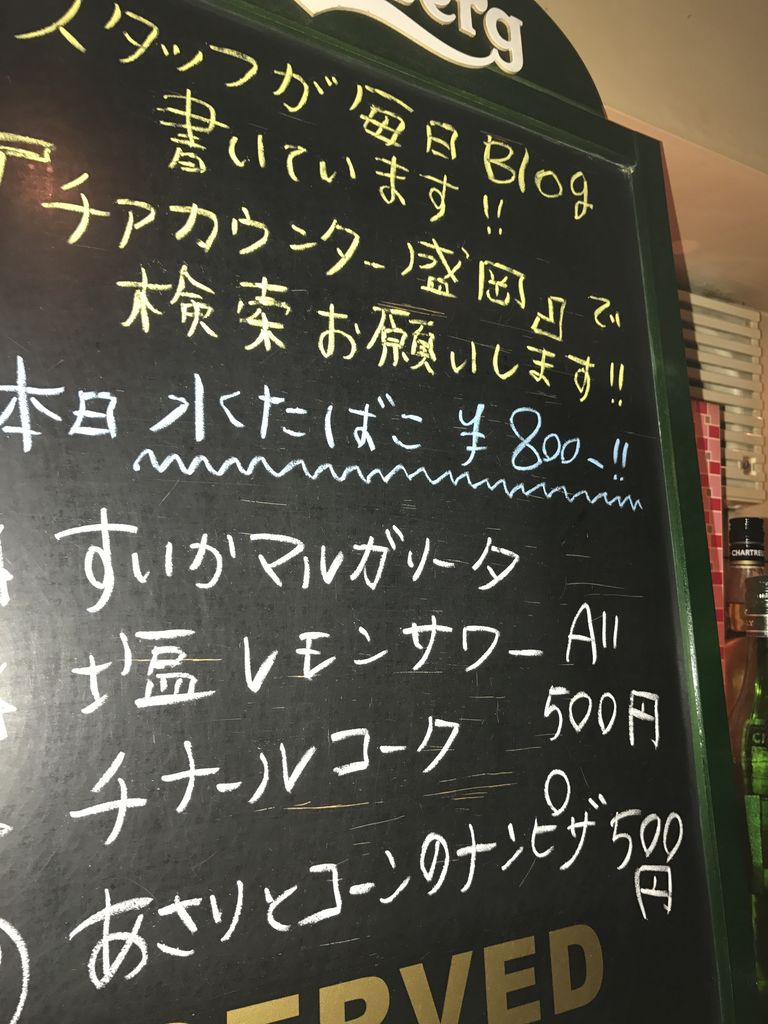 スタッフが毎日Blog
書いています!!
『チアカウンター盛岡』で
検索お願いします!!
本日 水たばこ ¥800~!!
すいかマルガリータ
塩レモンサワー All
500円
チナールコーク
あさりとコーンのナンピザ 500
円
CHARTREU